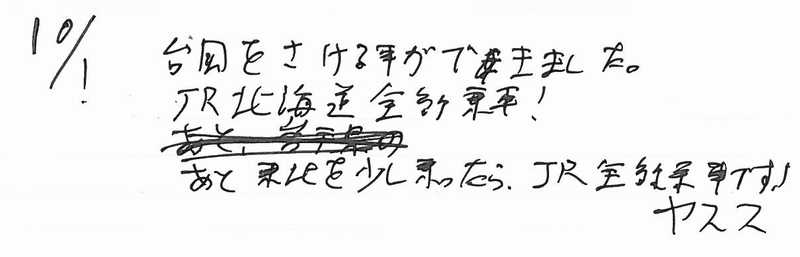 10/1
台風をさける事ができました。
JR北海道全部乗車!
あと東北を少し乗ったら、JR全部乗車です!
ヤスス